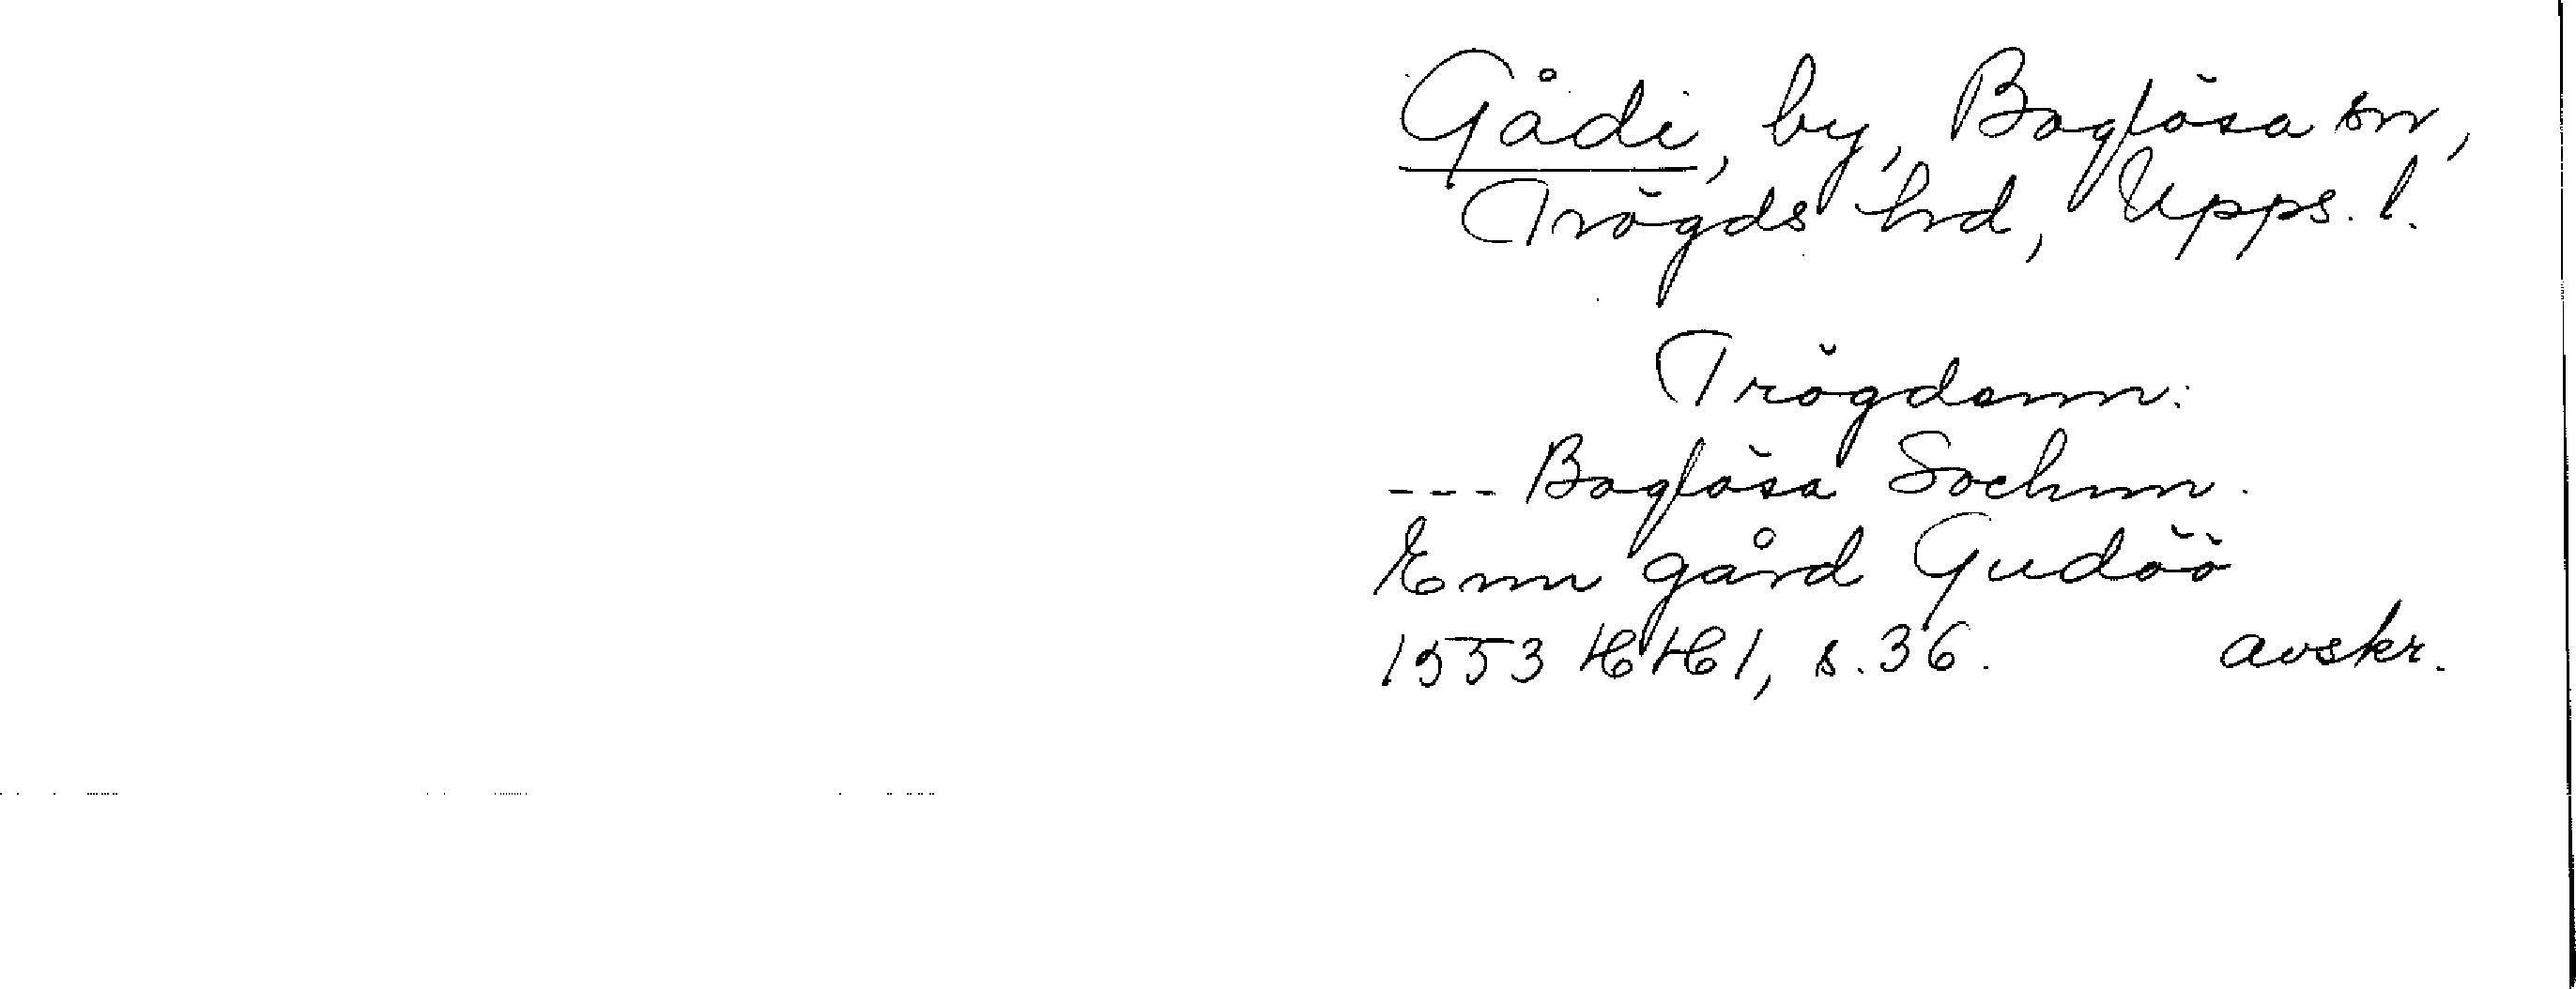 Gådi, by, Boglösa sn,
Trögds hd, Upps. l.
Trögdenn:
--- Boglösa Sochnn.
Enn gård Gudöö
1553 HH 1, s. 36. avskr.